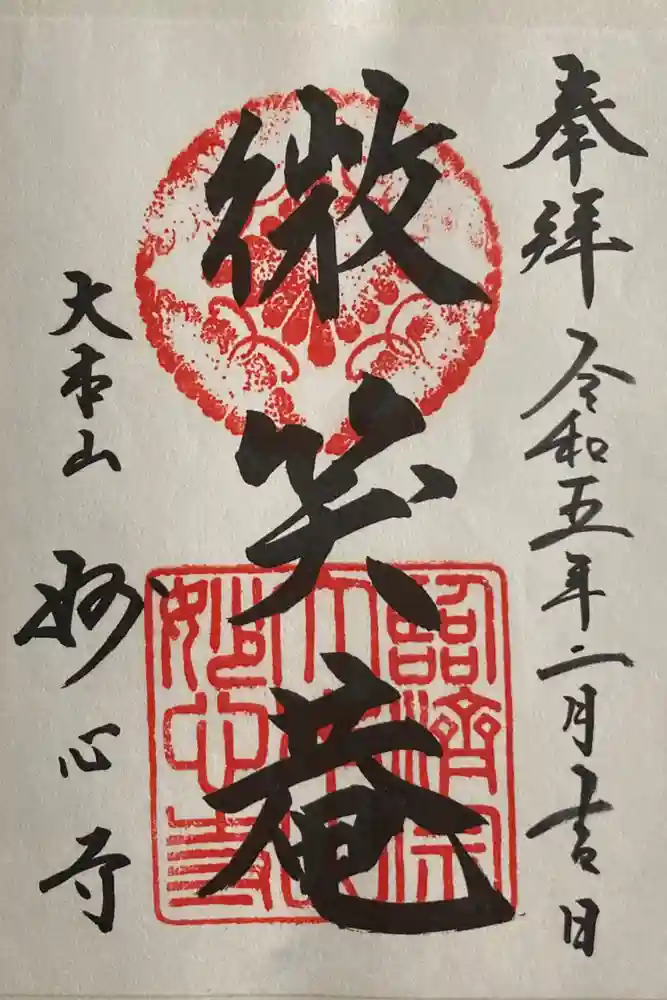 奉拜
令和五年二月吉日
微笑庵
臨済宗
大本山
妙心寺
大本山
妙心寺